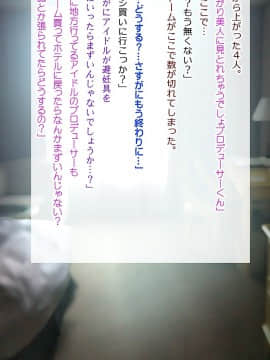 から上がった４人。
がり美人に見とれちゃうでしょプロデューサーくん」
ここで…
？もう無くない？」
ームがここで数が切れてしまった。
…どうする？…さすがにもう終わりに…」
シ買いに行こっか？」
がにアイドルが避妊具を
いったらまずいんじゃないでしょうか…？」
に地方行ってるアイドルのプロデューサーも
ーム買ってホテルに戻ったらなんかまずいんじゃない？
とか張られてたらどうするの？」